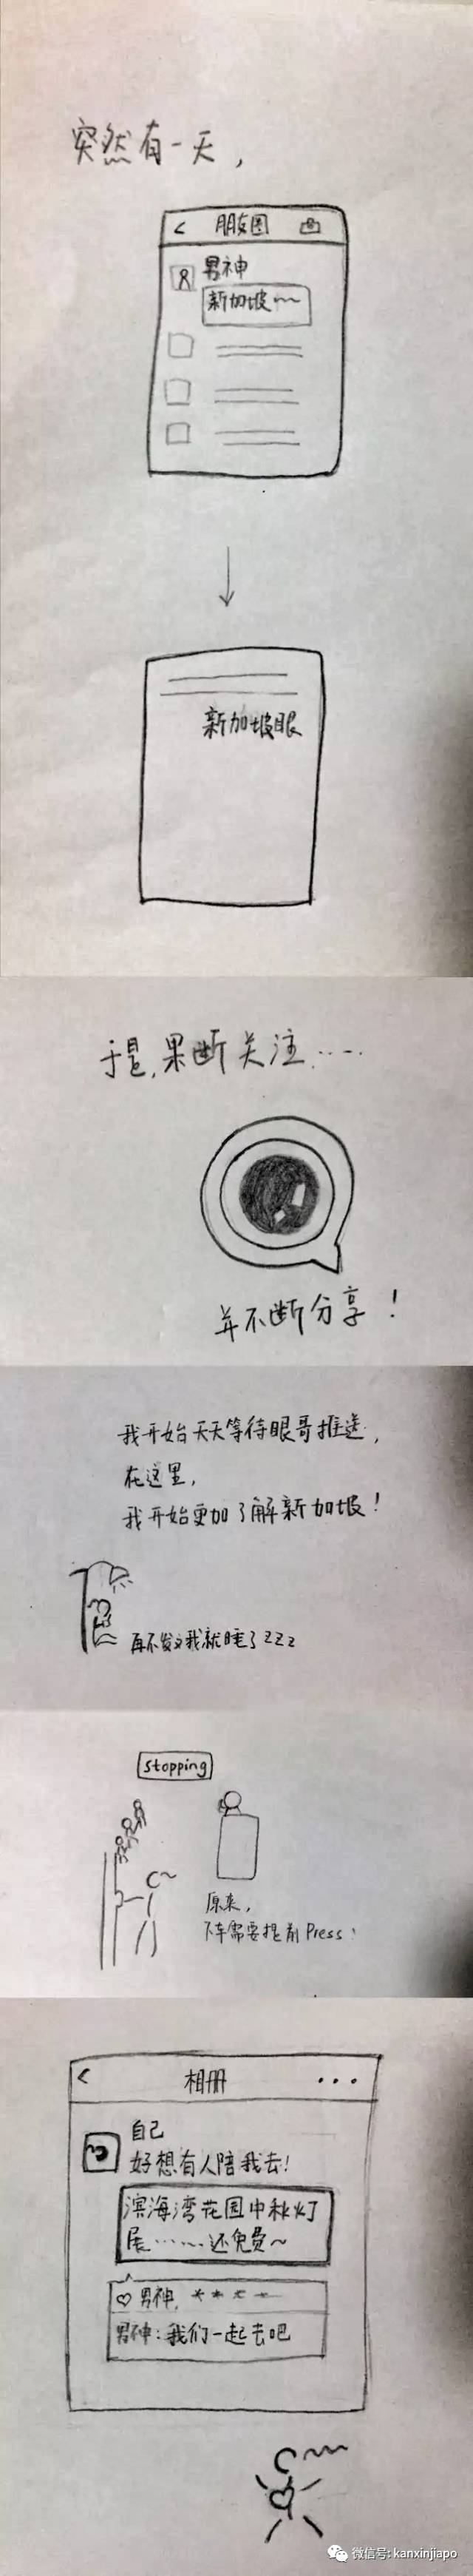 突然有一天，
< 朋友圈
男神
新加坡~~
新加坡眼
于是，果断关注……
并不断分享！
我开始天天等待眼哥推送，
在这里，
我开始更加了解新加坡！
再不发文我就睡了zzz
stopping
原来，
下车需要提前Press！
< 相册 ...
自己
好想有人陪我去！
滨海湾花园中秋灯
展……还免费~
♡男神，
男神：我们一起去吧
微信号: kanxinjiapo